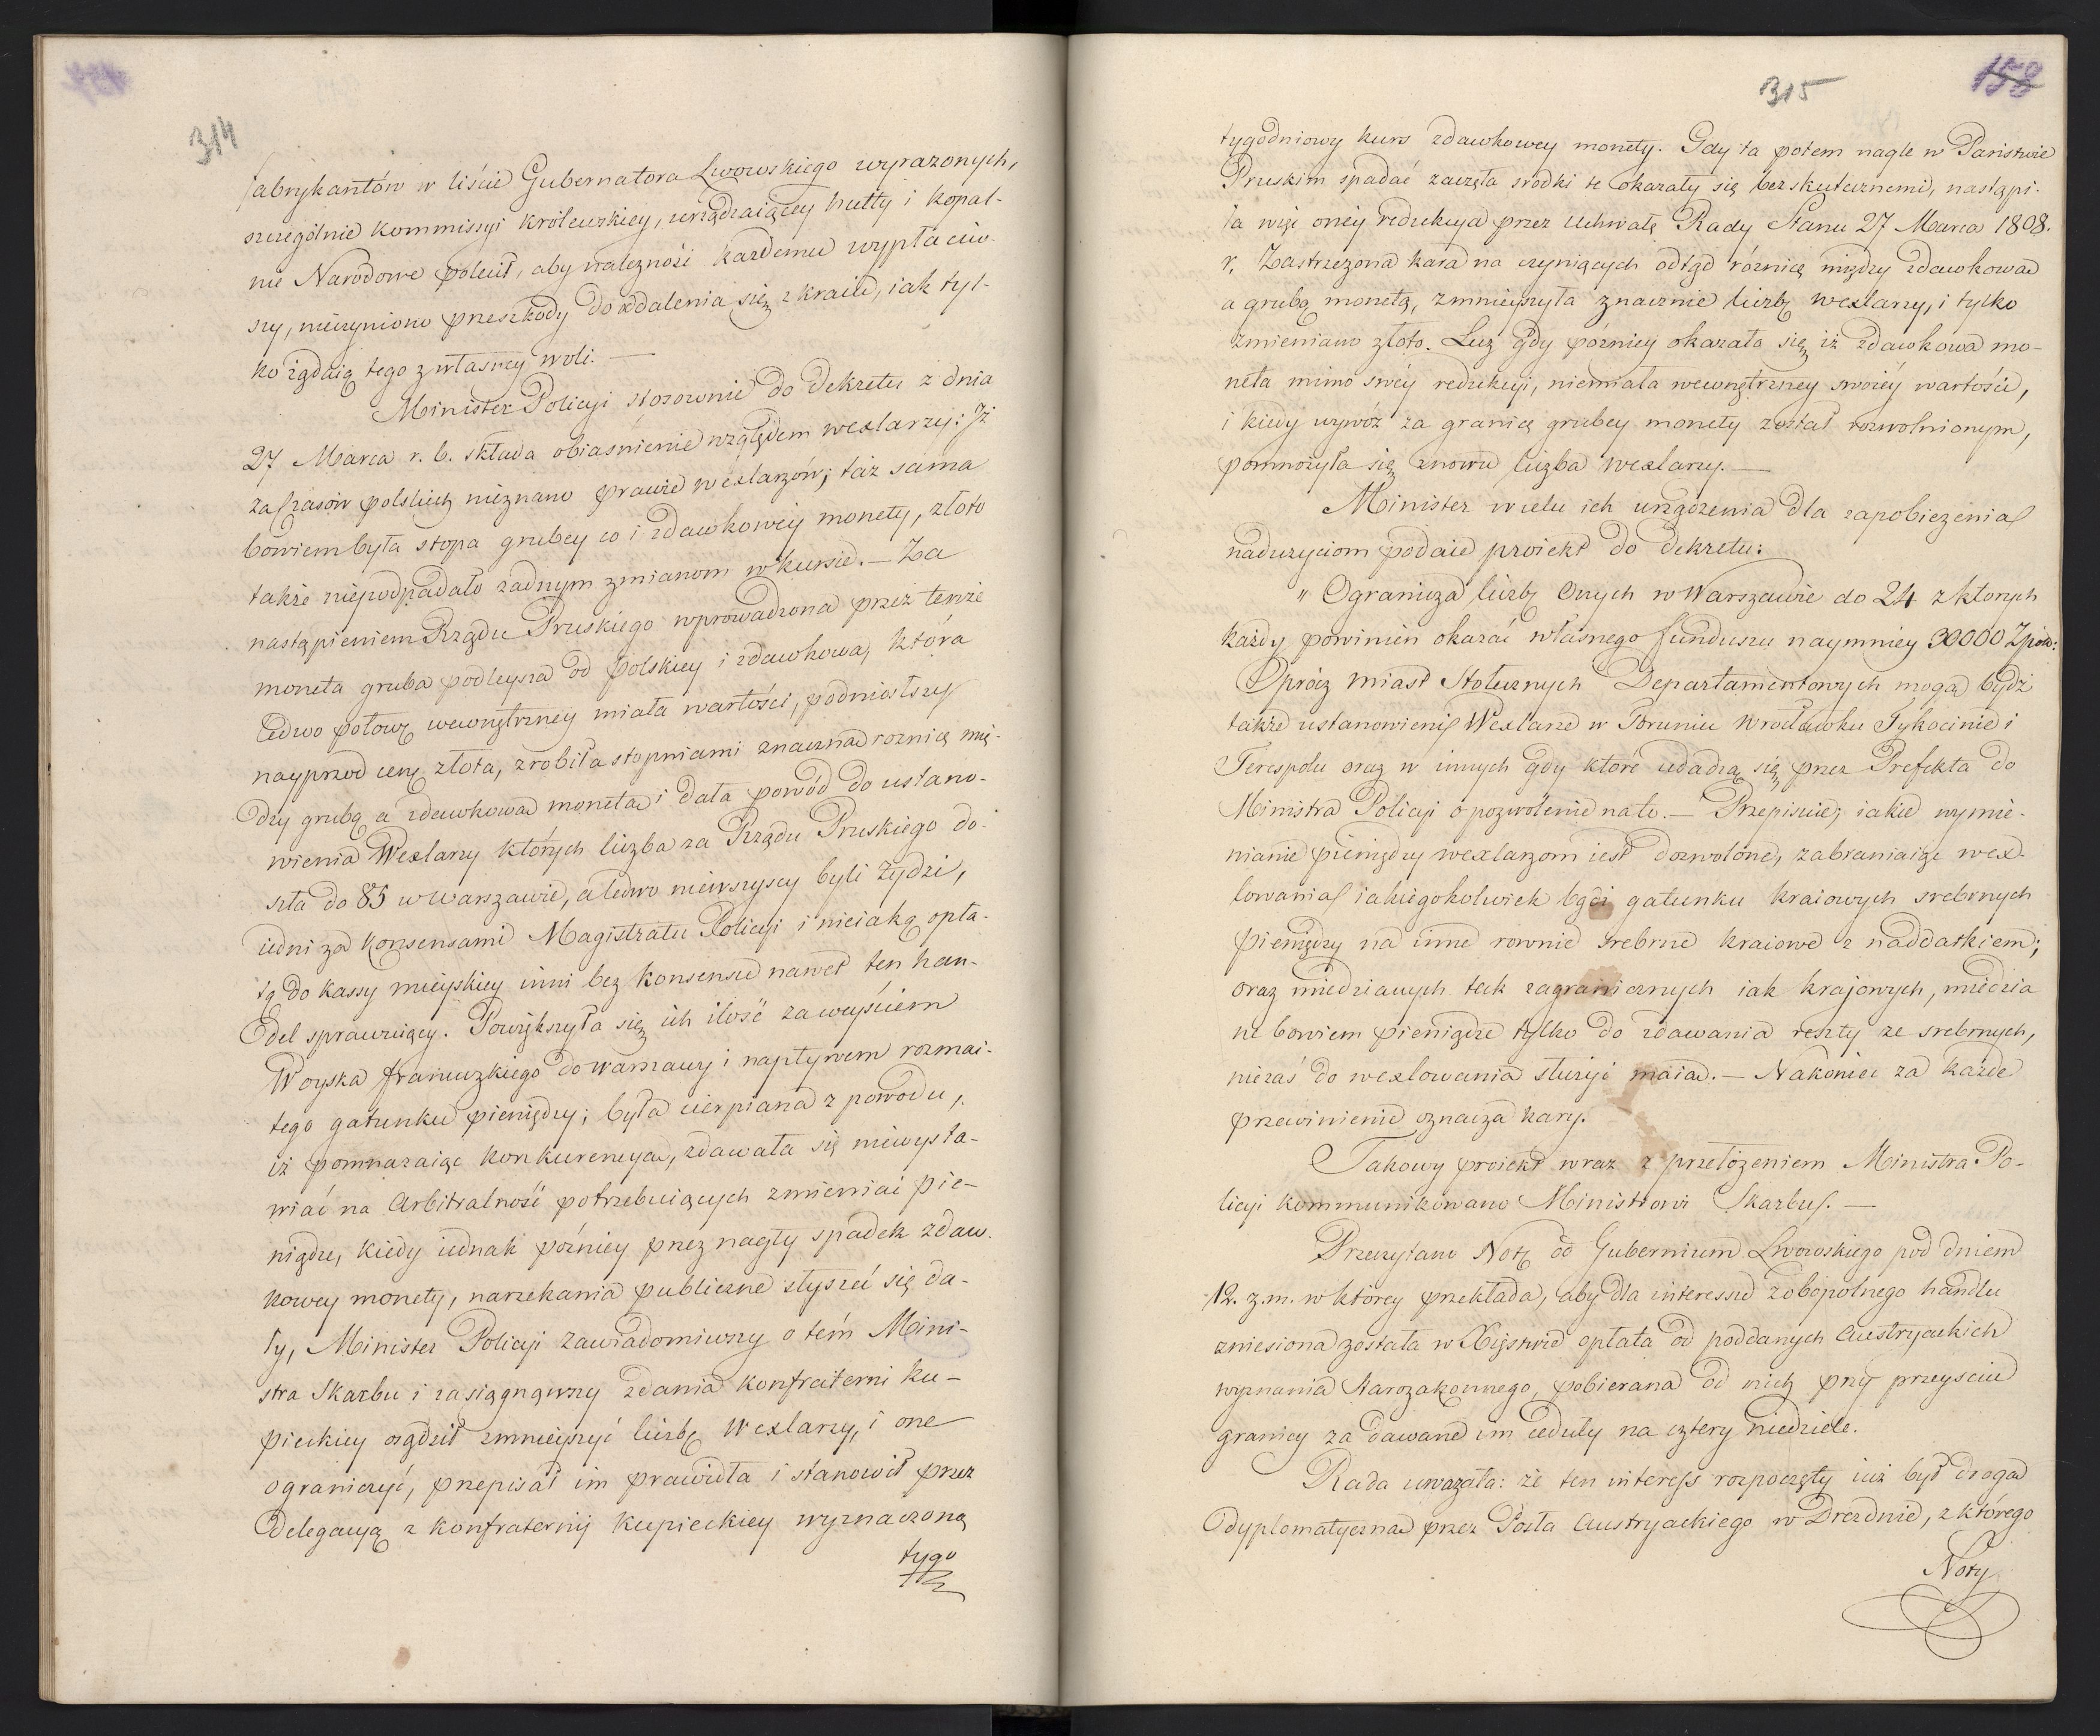 314
fabrykantów w liście Gubernatora Lwowskiego wyrażonych,
szczególnie Kommissyi Królewskiey, urządzaiącey hutty i kopal-
nie Narodowe polecił, aby należność każdemu wypłaciw-
szy, nieczyniono przeszkody do oddalenia się z kraiu, iak tyl-
ko żądaią tego z własney woli. —
Minister Policyi stosownie do Dekretu z dnia
27 Marca r. b. składa obiaśnienie względem wexlarzy: Iż
za czasów polskich nieznano prawie wexlarzów; taż sama
bowiem była stopa grubey co i zdawkowey monety, złoto
także niepodpadało żadnym zmianom w kursie. — Za
nastąpieniem Rządu Pruskiego wprowadzona przez tenże
moneta gruba podleysza od polskiey i zdawkowa, która
ledwo połowę wewnętrzney miała wartości, podniosłszy
nayprzod cenę złota, zrobiła stopniami znaczną roznicę mię-
dzy grubą a zdawkową monetą i dała powód do ustano-
wienia Wexlarzy których liczba za Rządu Pruskiego do-
szła do 85 w Warszawie, a ledwo niewszyscy byli Żydzi,
iedni za konsensami Magistratu Policyi i nieiaką opła-
tą do kassy mieyskiey inni bez konsensu nawet ten han-
del sprawuiący. Powiększyła się ich ilość za weyściem
Woyska francuzkiego do Warszawy i napływem rozmai-
tego gatunku pieniędzy; była cierpiana z powodu,
iż pomnażaiąc konkurencyą, zdawała się niewysta-
wiać na Arbitralność potrzebuiących zmieniać pie-
niądze, kiedy iednak pózniey przez nagły spadek zdaw-
kowey monety, narzekania publiczne słyszeć się da-
ły, Minister Policyi zawiadomiwszy o tém Mini-
stra Skarbu i zasiągnąwszy zdania Konfraterni ku-
pieckiey osądził zmnieyszyć liczbę Wexlarzy, i one
ograniczyć, przepisał im prawidła i stanowił przez
Delegacyą z konfraternij kupieckiey wyznaczoną
tygo
315
158
tygodniowy kurs zdawkowey monety. Gdy ta potem nagle w Państwie
Pruskim spadać zaczęła srodki te okazały się bezskutecznemi, nastąpi-
ła więc oneiy redukcya przez Uchwałę Rady Stanu 27 Marca 1808.
r. Zastrzeżona kara na czyniących odtąd różnicę między zdawkową
a grubą monetą, zmnieyszyła znacznie liczbę wexlarzy, i tylko
zmieniano złoto. Lecz gdy pózniey okazało się iż zdawkowa mo-
neta mimo swéy redukcyi, niemiała wewnętrzney swoiéy wartości,
i kiedy wywóz za granicę grubey monety został rozwolnionym,
pomnożyła się znowu liczba wexlarzy. —
Minister w celu ich urządzenia dla zapobieżenia
nadużyciom podaie proiekt do Dekretu:
" Ogranicza liczbę Onych w Warszawie do 24 z których
każdy powinien okazać własnego funduszu naymniey 30000 Zpol:
Oprócz miast Stołecznych Departamentowych mogą bydź
także ustanowieni Wexlarze w Toruniu Wrocławku Tykocinie i
Terespolu oraz w innych gdy które udadzą się przez Prefekta do
Ministra Policyi o pozwolenie na to. — Przepisuie; iakie wymie-
nianie pieniędzy wexlarzom iest dozwolone, zabraniaiąc wex-
lowania iakiegokolwiek bądź gatunku kraiowych srebrnych
pieniędzy na inne rownie srebrne kraiowe z naddatkiem;
oraz miedzianych tak zagranicznych iak krajowych, miedzia-
ne bowiem pieniądze tylko do zdawania reszty ze srebrnych,
niezaś do wexlowania służyć maią. — Nakoniec za każde
przewinienie oznacza kary.
Takowy proiekt wraz z przełożeniem Ministra Po-
licyi kommunikowano Ministrowi Skarbu. —
Przeczytano Notę od Gubernium Lwowskiego pod dniem
12. z. m. w którey przekłada, aby dla interessu zobopolnego handlu
zniesiona została w Xięstwie opłata od poddanych Austryackich
wyznania Starozakonnego, pobierana od nich przy przeysciu
granicy za dawane im ceduły na cztery niedziele.
Rada uważała: że ten interess rozpoczęty iuż był drogą
dyplomatyczną przez Posła Austryackiego w Dreznie, z którego
Noty